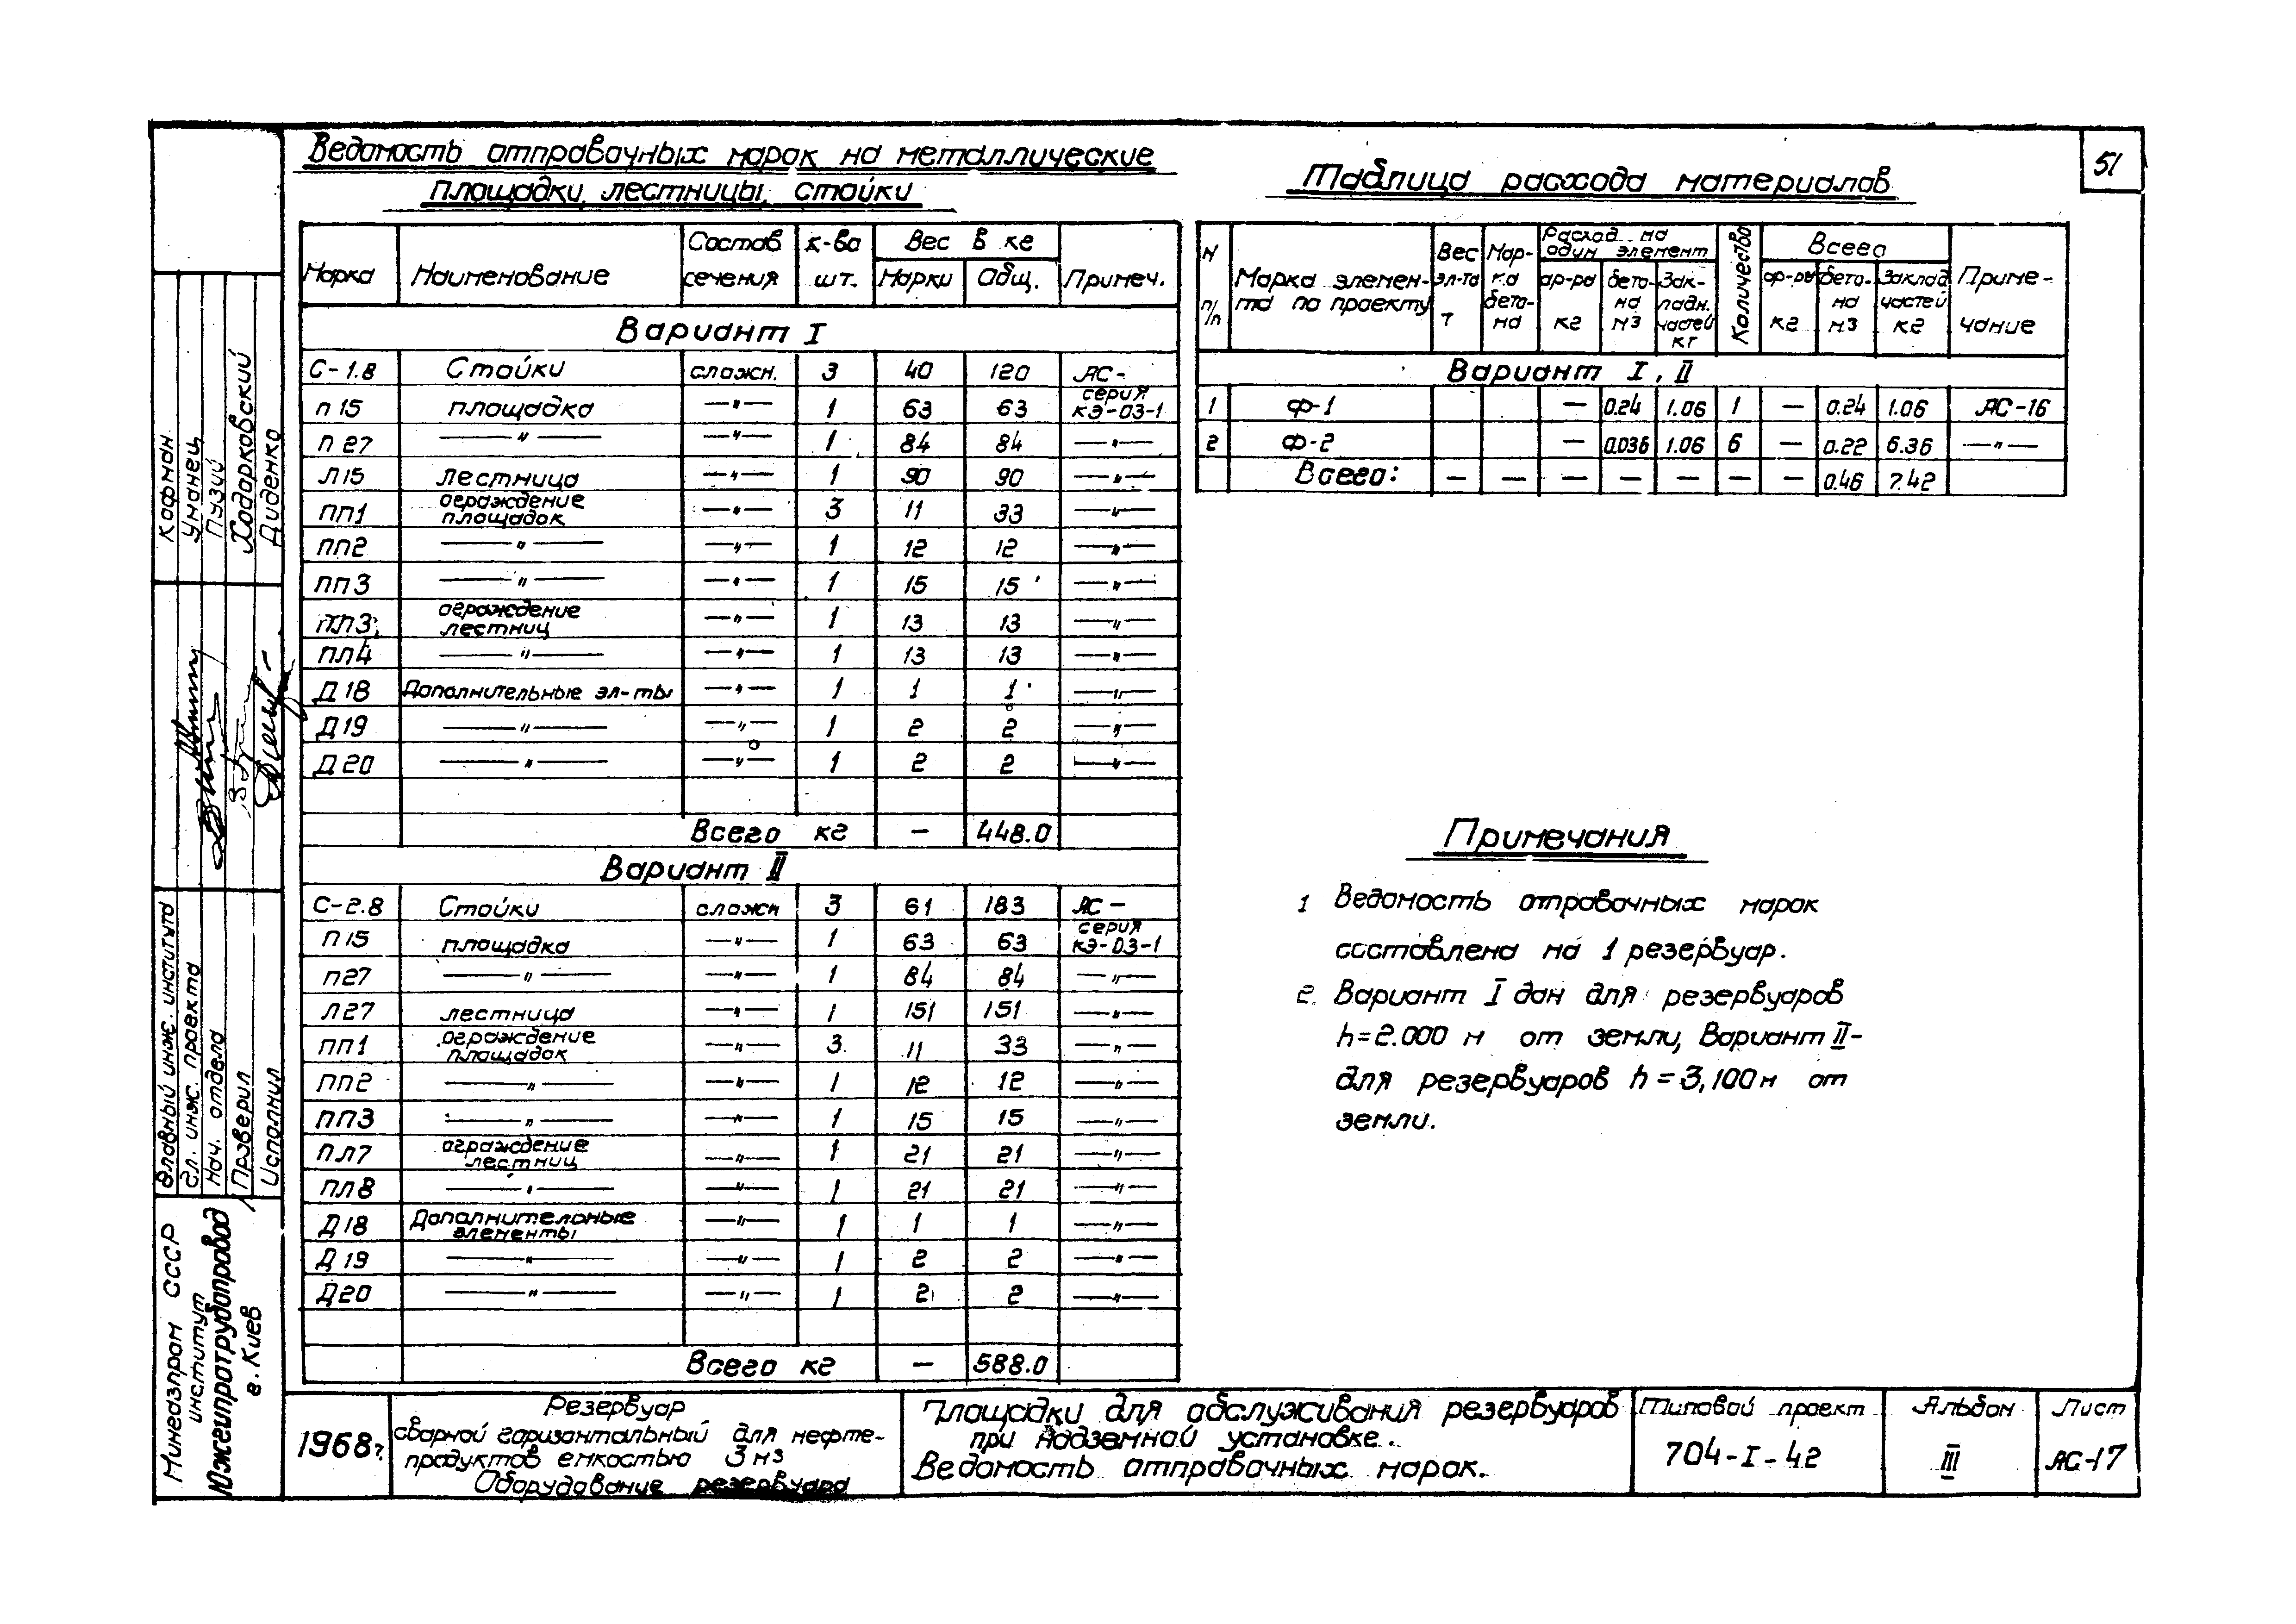 51
Ведомость отправочных марок на металлические
площадки, лестницы, стойки
Марка Наименование Состав сечения к-во шт. Вес в кг Марки Общ. Примеч.
Вариант I
С-1.8 Стойки сложн. 3 40 120 АС-
П15 площадка —"— 1 63 63 серия КЭ-03-1
П27 —"— —"— 1 84 84 —"—
Л15 лестница —"— 1 90 90 —"—
ПП1 ограждение площадок —"— 3 11 33 —"—
ПП2 —"— —"— 1 12 12 —"—
ПП3 —"— —"— 1 15 15 —"—
ПЛ3 ограждение лестниц —"— 1 13 13 —"—
ПЛ4 —"— —"— 1 13 13 —"—
Д18 Дополнительные эл-ты —"— 1 1 1 —"—
Д19 —"— —"— 1 2 2 —"—
Д20 —"— —"— 1 2 2 —"—
Всего кг — 448.0
Вариант II
С-2.8 Стойки сложн 3 61 183 АС-
П15 площадка —"— 1 63 63 серия КЭ-03-1
П27 —"— —"— 1 84 84 —"—
Л27 лестница —"— 1 151 151 —"—
ПП1 ограждение площадок —"— 3 11 33 —"—
ПП2 —"— —"— 1 12 12 —"—
ПП3 —"— —"— 1 15 15 —"—
ПЛ7 ограждение лестниц —"— 1 21 21 —"—
ПЛ8 —"— —"— 1 21 21 —"—
Д18 Дополнительные элементы —"— 1 1 1 —"—
Д19 —"— —"— 1 2 2 —"—
Д20 —"— —"— 1 2 2 —"—
Всего кг — 588.0
Таблица расхода материалов
N п/п Марка элемента по проекту Вес эл-та т Марка бетона Расход на один элемент ар-ры кг бетона м3 Закладн. частей кг Количество Всего ар-ры кг бетона м3 Заклад частей кг Примечание
Вариант I, II
1 Ф-1 — 0.24 1.06 1 — 0.24 1.06 АС-16
2 Ф-2 — 0.036 1.06 6 — 0.22 6.36 —"—
Всего: — — — — — — — 0.46 7.42
Примечания
1 Ведомость отправочных марок
составлена на 1 резервуар.
2. Вариант I дан для резервуаров
h=2.000 м от земли, Вариант II-
для резервуаров h=3,100м от
земли.
Кафман
Уманец
Пузий
Ходарковский
Диденко
Главный инж. института
Гл. инж. проекта
Нач. отдела
Проверил
Исполнил
Мингазпром СССР
институт
Южгипротрубопровод
г. Киев
1968г.
Резервуар
сварной горизонтальный для нефте-
продуктов емкостью 3 м3
Оборудование резервуара
Площадки для обслуживания резервуаров
при надземной установке.
Ведомость отправочных марок.
Типовой проект
704-I-42
Альбом
III
Лист
АС-17